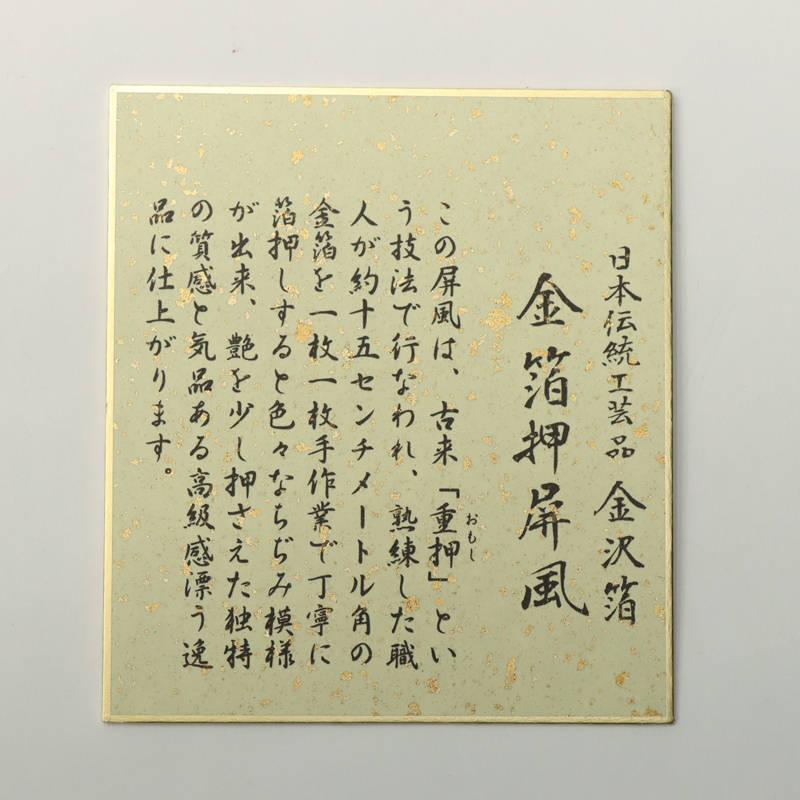 日本伝統工芸品 金沢箔
金箔押屏風
この屏風は、古来「重押」とい
おもし
う技法で行なわれ、熟練した職
人が約十五センチメートル角の
金箔を一枚一枚手作業で丁寧に
箔押しすると色々なちぢみ模様
が出来、艶を少し押さえた独特
の質感と気品ある高級感漂う逸
品に仕上がります。